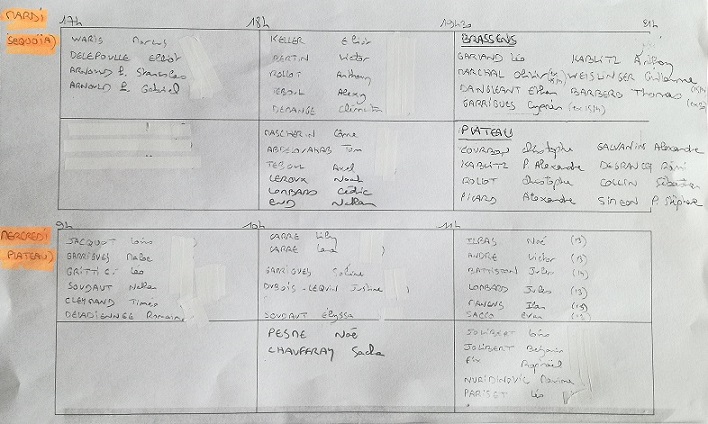 MARDI
SEQUOIA)
17h 18h 19h30 21h
WARIS Marius
DELEPOULLE Eliot
ARNOULD P. Stanislas
ARNOULD P. Gabriel
KELLER
BERTIN Victor
ROLLOT Anthony
TEBOUL Alexy
DEBANGE Clément
BRASSENS
GARLAND Léo KABLITZ Anthony
MARCHAL Olivier WEISLINGER Guillaume
DANGLEANT Ethan BARBERO Thomas
GARRIGUES Cyprien (ex 15/4)
MASCHERIN Côme
ABDELOUAHAB Tom
TEBOUL Axel
LEROUX Noah
LOMBARD Cédric
Nathan
PLATEAU
COURBON Christophe GALVANIN Alexandre
KABLITZ P. Alexandre DEGRANCQ Rémi
ROLLOT Christophe COLLIN Sébastien
PICARD Alexandre SIMEON P. Stéphane
MERCREDI
PLATEAU)
9h 10h 11h
JACQUOT Loïs
GARRIGUES
GRITTI C. Léo
SOUDAUT Nathan
CLEMAND Timeo
Romain
CARRE Lily
CARRE Lena
GARRIGUES Sabine
DUBOIS-LEQUIN Justine
SOUDAUT Elyssa
Noé (13)
ANDRE Victor (13)
BATTISTON Jules (14)
LOMBARD Jules (13)
Ilan (13)
SACCO Evan (13)
PESME Noé
CHAUFFRAY Sacha
JOLIBERT Loïs
JOLIBERT Benjamin
FIX Raphaël
NURIDINOVIC Maxime
PARISET Léo